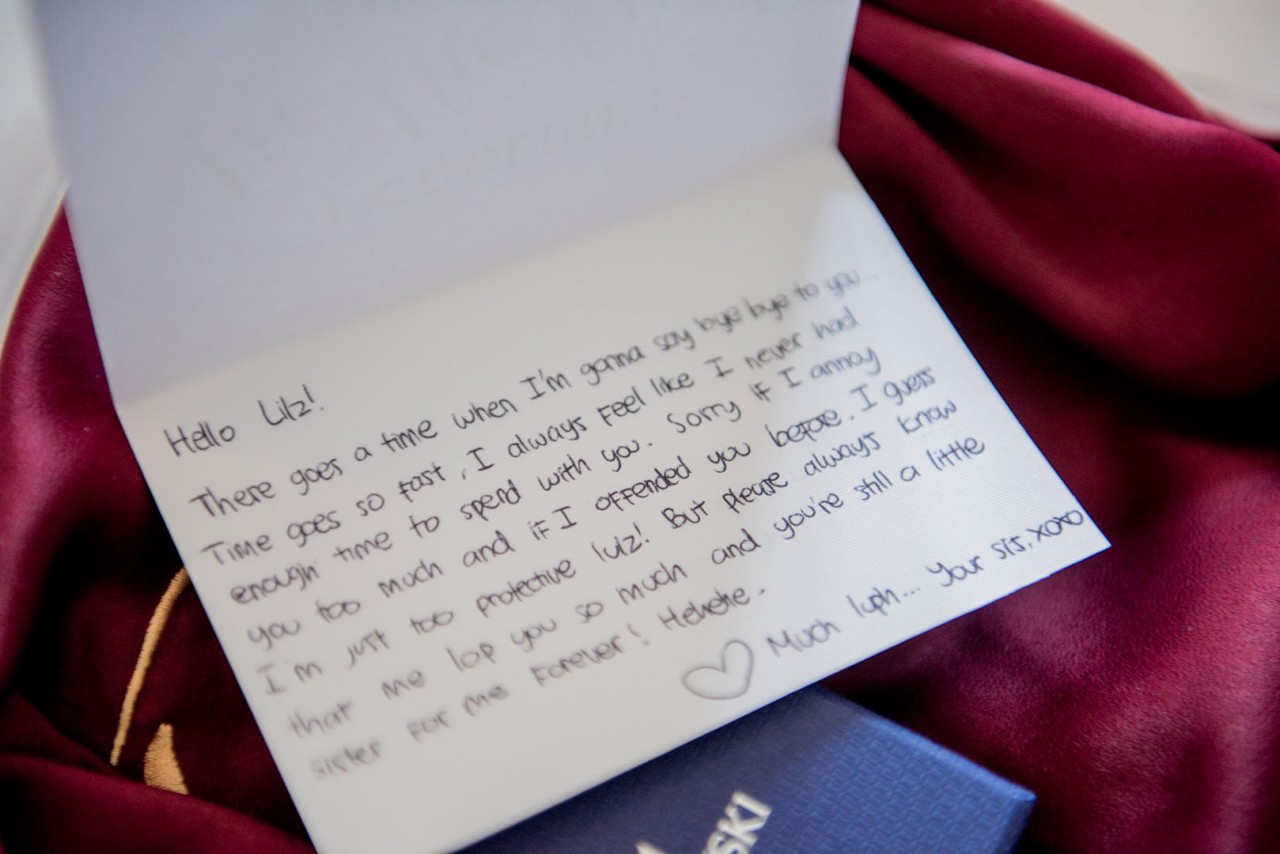 Hello Lilz!
There goes a time when I'm gonna say bye bye to you...
Time goes so fast, I always feel like I never had
enough time to spend with you. Sorry if I annoy
you too much and if I offended you before. I guess
I'm just too protective lulz! But please always know
that me lop you so much and you're still a little
sister for me Forever! Hehehe.
Much luph... Your sis, xoxo
SKI